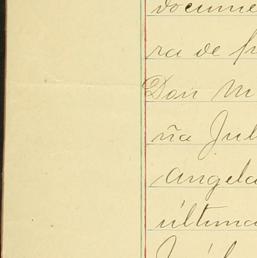 docume
ra de fr
Don M
ña Jul
Angela
última